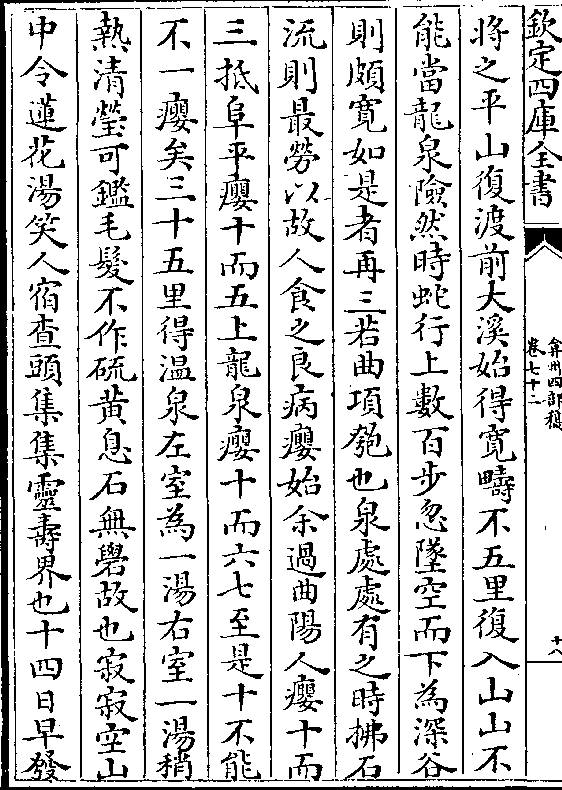 欽定四庫全書
弇州四部稿
卷七十二
十八
將之平山復渡前大溪始得寛疇不五里復入山山不
能當龍泉險然時蛇行上數百步忽墜空而下為深谷
則頗寛如是者再三若曲項匏也泉處處有之時拂石
流則最勞以故人食之良病癭始余過曲陽人癭十而
三抵阜平癭十而五上龍泉癭十而六七至是十不能
不一癭矣三十五里得温泉左室為一湯右室一湯稍
熱清瑩可鑑毛髮不作硫黄息石無礜故也寂寂空山
中令蓮花湯笑人宿查頭集集靈壽界也十四日早發